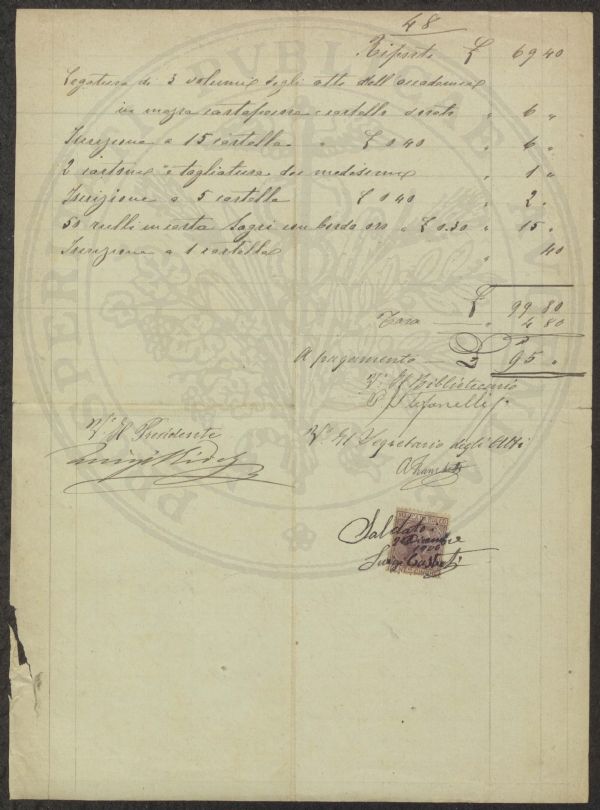 48
Riporto £ 69 40
Legatura di 3 volumi degli atti dell'accademia
in mezza cartapecora cartello dorato " 6 "
Iscrizione a 15 cartella " £ 0 40 " 6 "
2 cartoni e tagliatura dei medesimi " 1 "
Iscrizione a 5 cartella £ 0 40 " 2 "
50 rulli in carta Sagrì con bordo oro a £ 0.30 " 15 "
Iscrizione a 1 cartella " 40
£ 99 80
Tara " 4 80
A pagamento £ 95 "
V° Il Bibliotecario
P. Stefanelli
V° Il Presidente
Luigi
V° Il Segretario degli Atti
A. Franchetti
Saldato
Dicembre
1900
Luigi